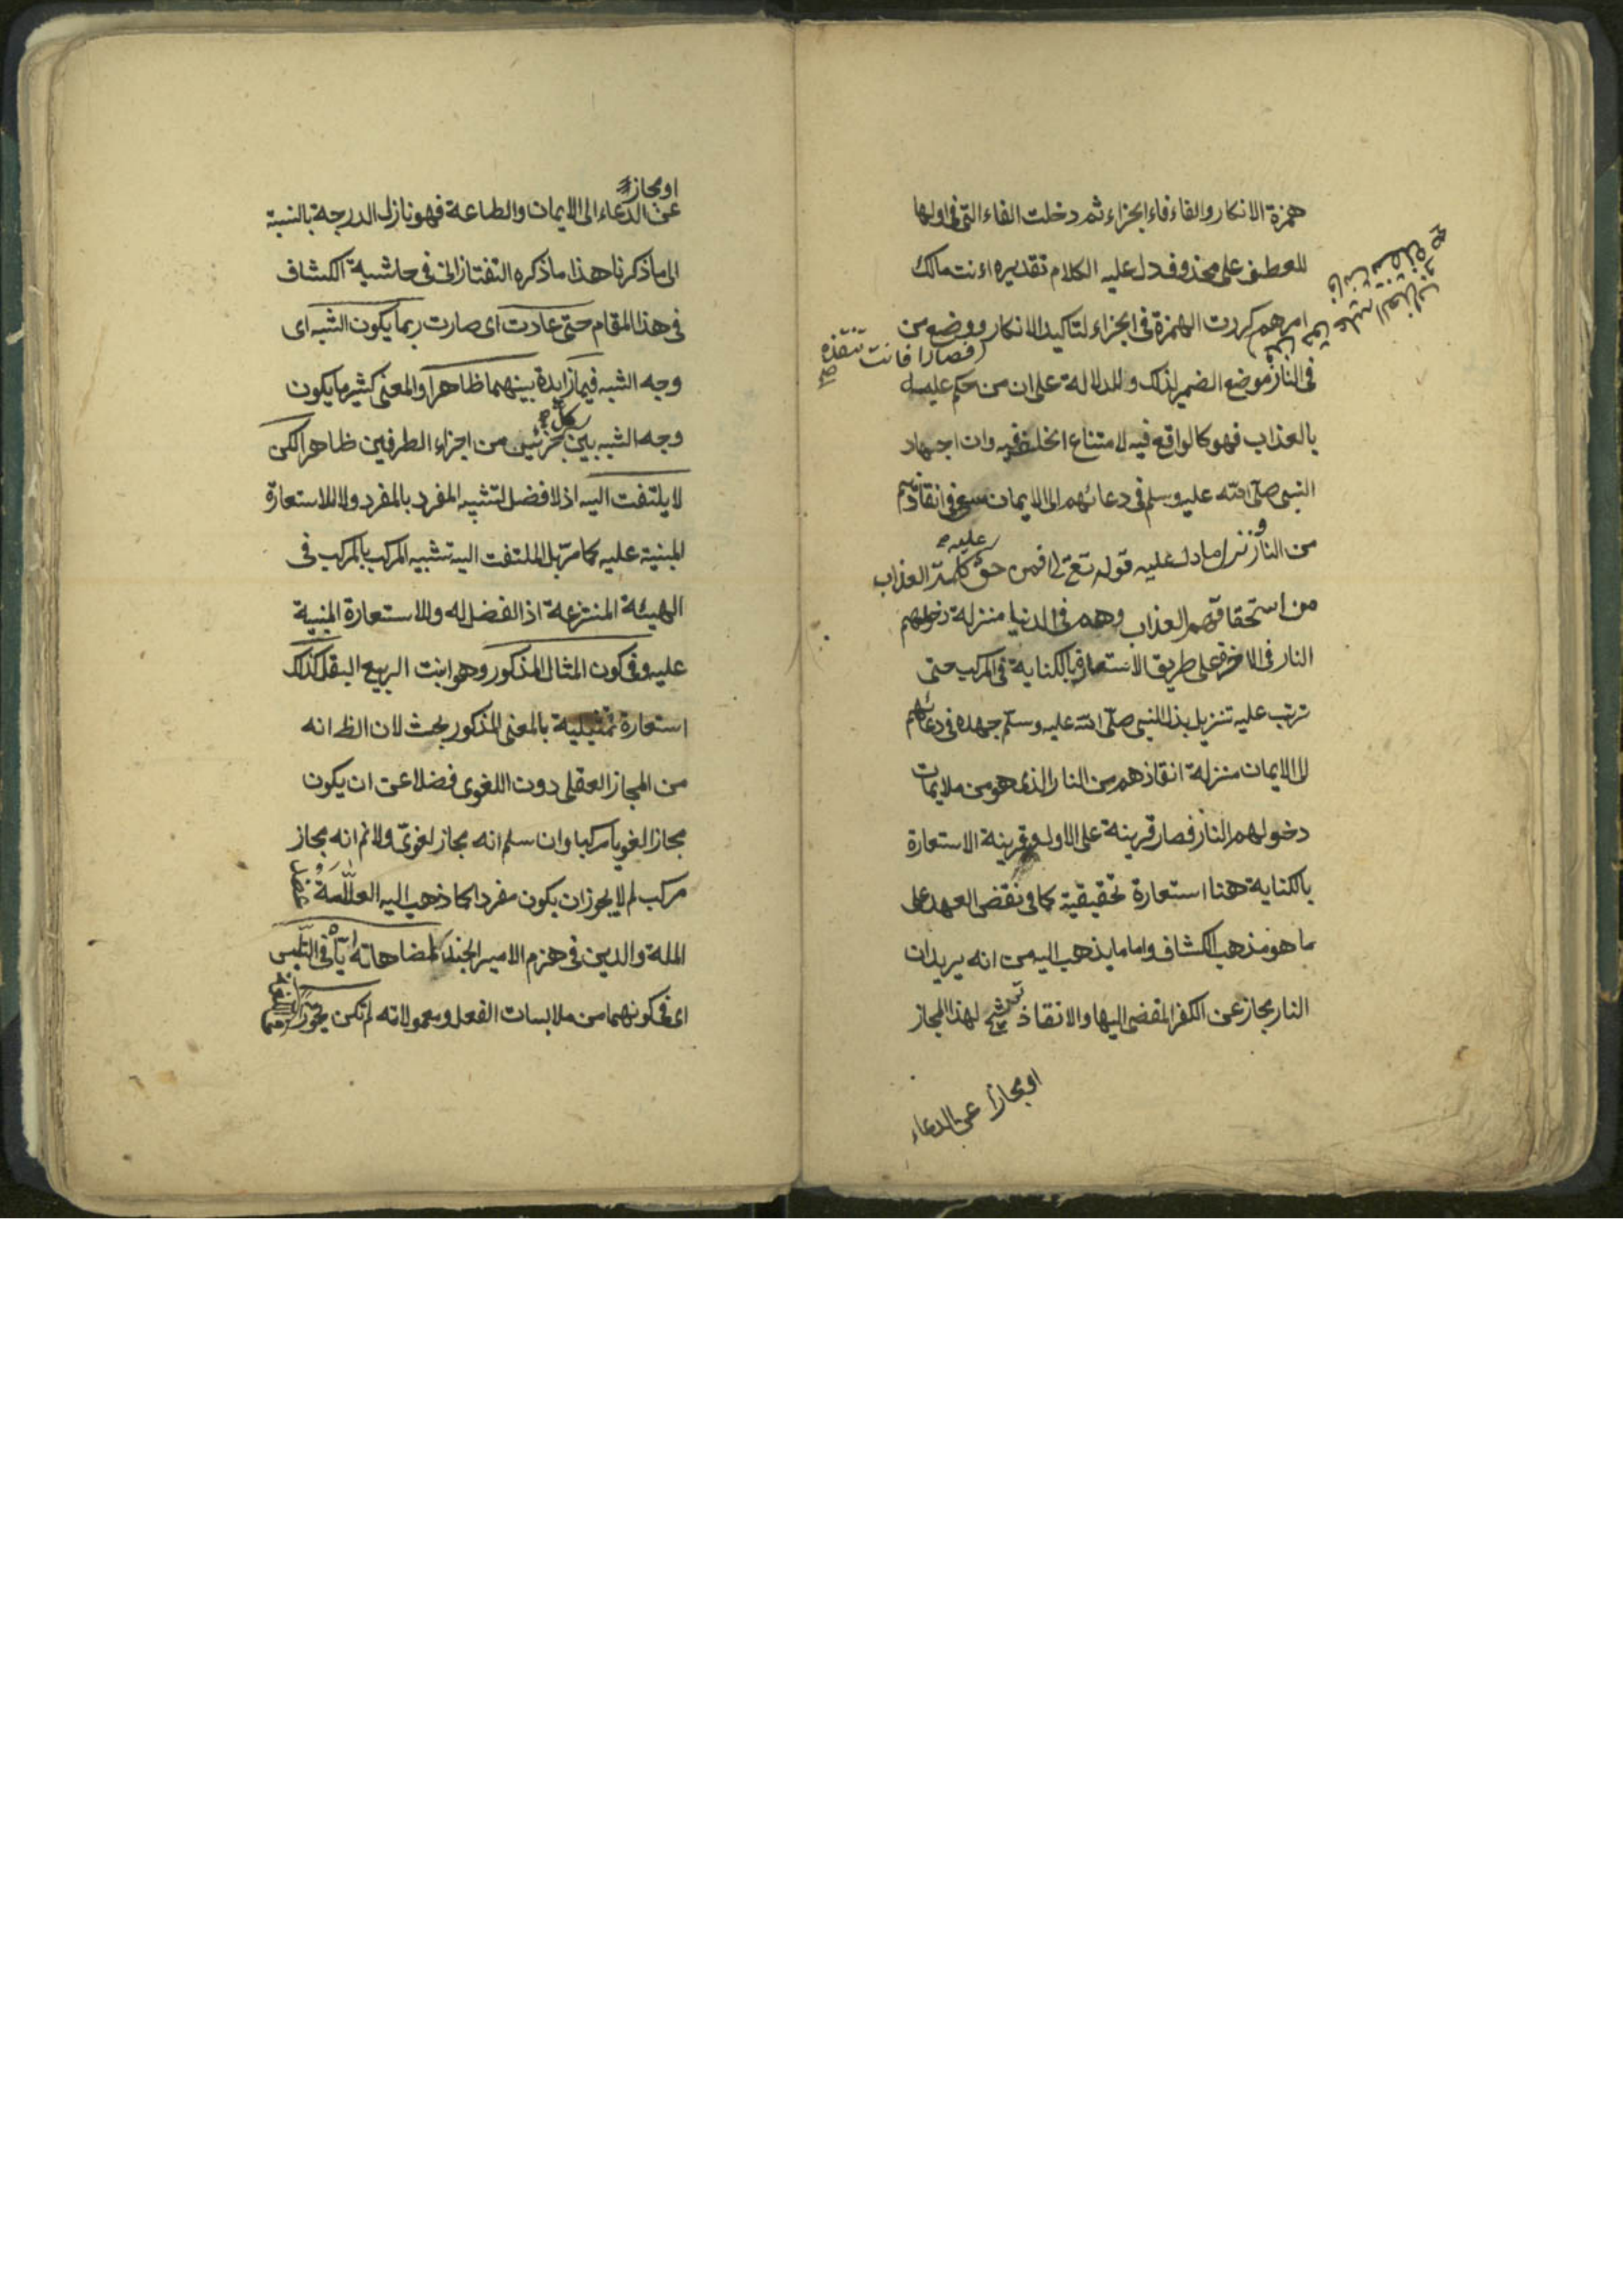 همزة الانكار والفاء فاء الجزاء ثم دخلت الفاء التى فى اولها
للعطف على محذوف دل عليه الكلام تقديره اءنت مالك
امرهم كررت الهمزة فى الجزاء لتاكيد الانكار ووضع من
فى النار موضع الضمير لذلك وللدلالة على ان من حكم عليه
بالعذاب فهو كالواقع فيه لامتناع الخلف فيه وان اجهاد
النبى صلى الله عليه وسلم فى دعائهم الى الايمان سعى فى انقاذهم
من النار ونزل ما دل عليه قوله تع افمن حق عليه كلمة العذاب
من استحقاقهم العذاب وهم فى الدنيا منزلة دخولهم
النار فى الاخرة على طريق الاستعارة بالكناية فى المركب حتى
ترتب عليه تنزيل بذل النبى صلى الله عليه وسلم جهده فى دعائهم
الى الايمان منزلة انقاذهم من النار الذى هو من ملايمات
دخولهم النار فصار قرينة على الاول وقرينة الاستعارة
بالكناية هنا استعارة تحقيقية كما فى نقض العهد على
ما هو مذهب الكشاف واما ما يذهب اليه من انه يريد ان
النار مجاز عن الكفر المفضى اليها والانقاذ ترشيح لهذا المجاز
او مجازا عن الدعاء
او مجاز
عن الدعاء الى الايمان والطاعة فهو نازل الدرجة بالنسبة
الى ما ذكرنا هذا ما ذكره التفتازانى فى حاشية الكشاف
فى هذا المقام حتى عادت اى صارت ربما يكون الشبه اى
وجه الشبه فيما زايدة بينهما ظاهرا والمعنى كثير ما يكون
وجه الشبه بين كل جزئين من اجزاء الطرفين ظاهرا لكن
لا يلتفت اليه اذ لا فضل لتشبيه المفرد بالمفرد ولا للاستعارة
المبنية عليه كما مر بل الملتفت اليه تشبيه المركب بالمركب فى
الهيئة المنتزعة اذ الفضل له وللاستعارة المبنية
عليه وفى كون المثال المذكور وهو انبت الربيع البقل كذلك
استعارة تمثيلية بالمعنى المذكور بحث لان الظ انه
من المجاز العقلى دون اللغوى فضلا عن ان يكون
مجازا لغويا مركبا وان سلم انه مجاز لغوى ولا نم انه مجاز
مركب لم لا يجوز ان يكون مفردا كما ذهب اليه العلامة
الملة والدين فى هزم الامير الجند لمضاهاته اياه فى التلبس
اى فى كونهما من ملابسات الفعل ومعمولاته لم تكن